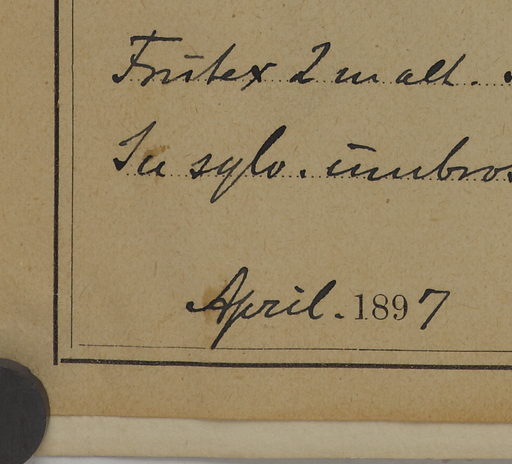 Frutex 2 m alt.
In sylv. umbros
April. 1897